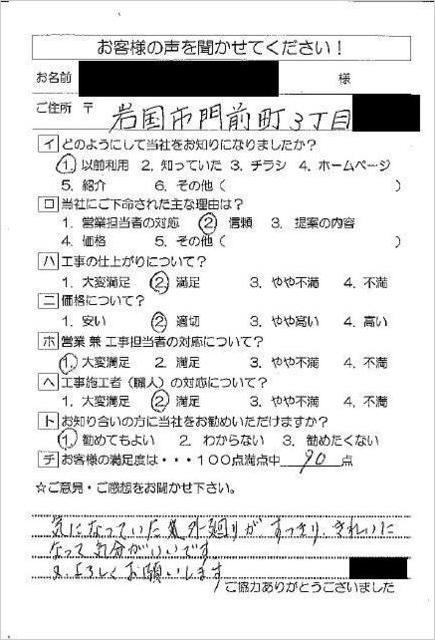 お客様の声を聞かせてください！
お名前 様
ご住所 〒 岩国市門前町3丁目
イ どのようにして当社をお知りになりましたか？
1. 以前利用 2. 知っていた 3. チラシ 4. ホームページ
5. 紹介 6. その他（ ）
ロ 当社にご下命された主な理由は？
1. 営業担当者の対応 2 信頼 3. 提案の内容
4. 価格 5. その他（ ）
ハ 工事の仕上がりについて？
1. 大変満足 2. 満足 3. やや不満 4. 不満
ニ 価格について？
1. 安い 2. 適切 3. やや高い 4. 高い
ホ 営業 兼 工事担当者の対応について？
1. 大変満足 2. 満足 3. やや不満 4. 不満
ヘ 工事施工者（職人）の対応について？
1. 大変満足 2. 満足 3. やや不満 4. 不満
ト お知り合いの方に当社をお勧めいただけますか？
1. 勧めてもよい 2. わからない 3. 勧めたくない
チ お客様の満足度は・・・100点満点中 90 点
☆ご意見・ご感想をお聞かせ下さい。
気になっていた家外廻りが すっきり、きれいに
なって 気分がいいです
又よろしくお願いします
ご協力ありがとうございました